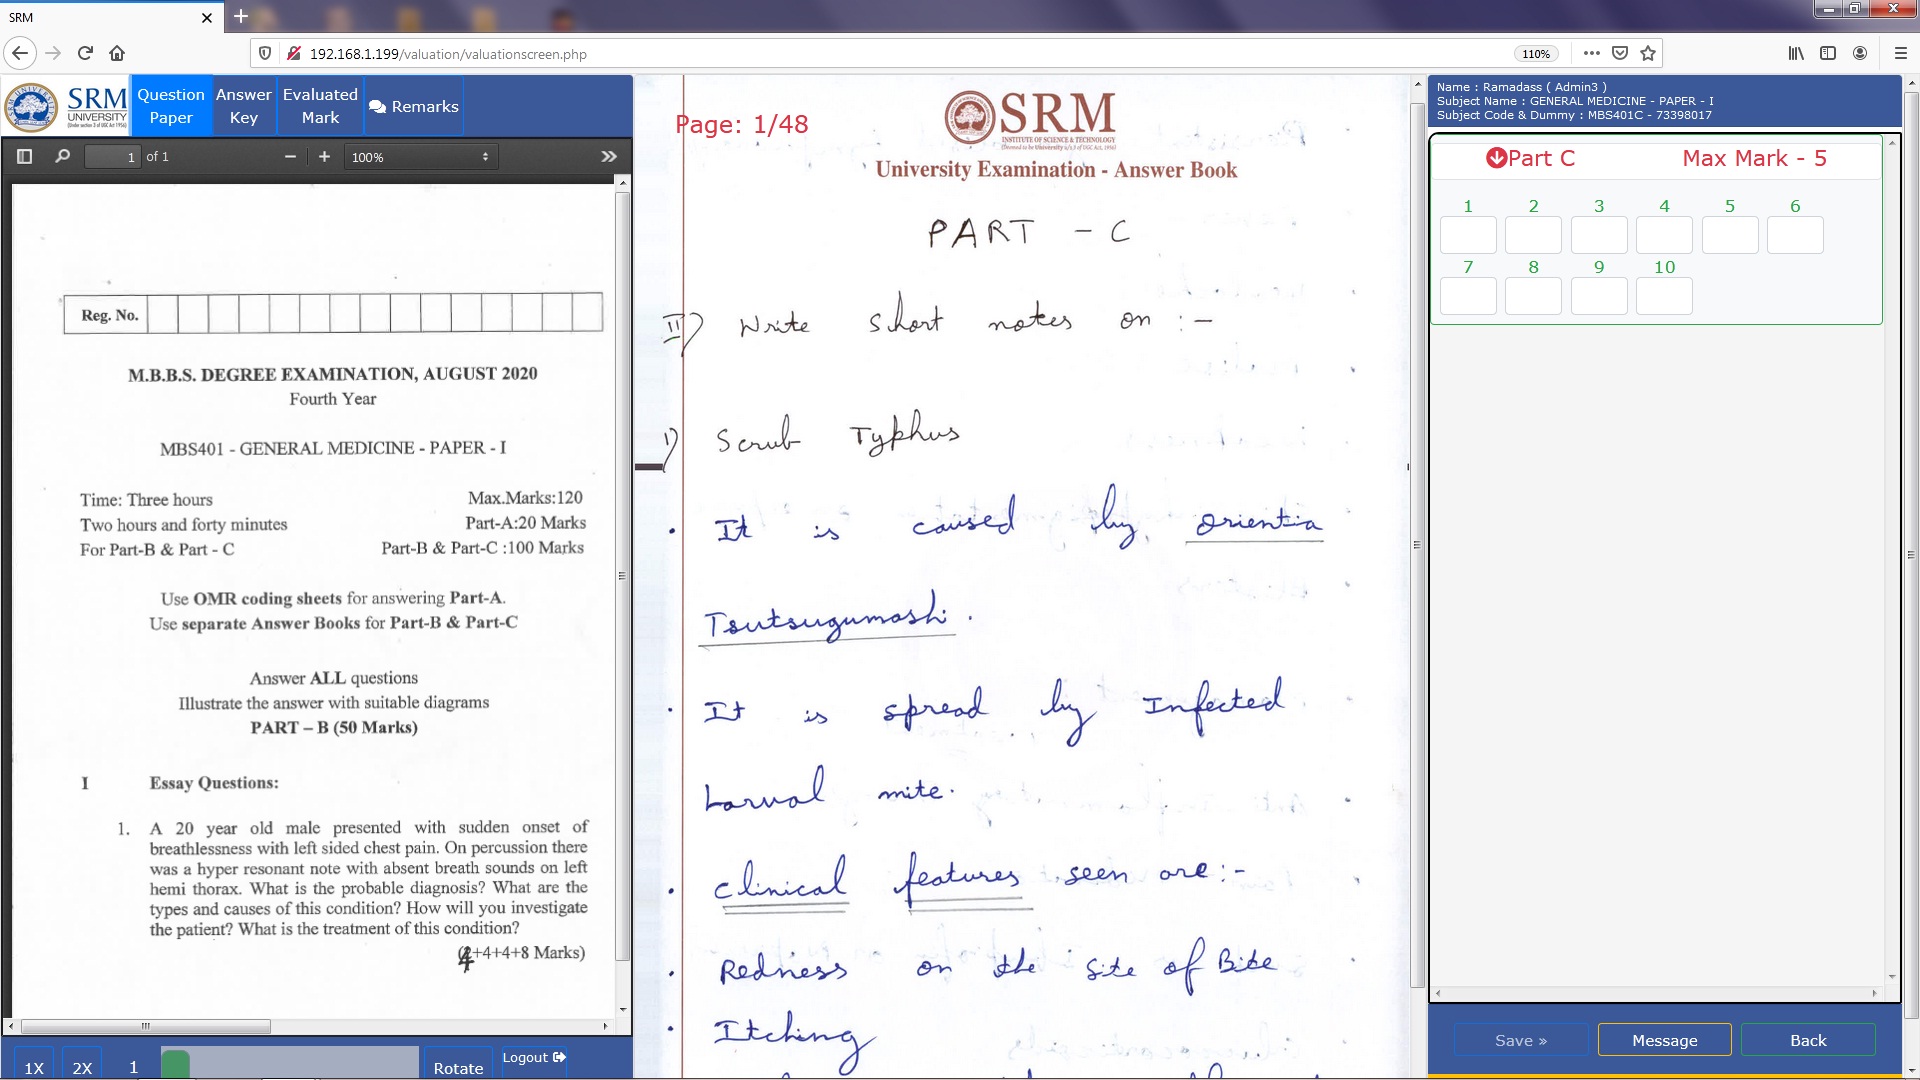 SRM
192.168.1.199/valuation/valuationscreen.php
110%
SRM
UNIVERSITY
(Under section 3 of UGC Act 1956)
Question Paper
Answer Key
Evaluated Mark
Remarks
1 of 1
100%
Reg. No.
M.B.B.S. DEGREE EXAMINATION, AUGUST 2020
Fourth Year
MBS401 - GENERAL MEDICINE - PAPER - I
Time: Three hours Max.Marks:120
Two hours and forty minutes Part-A:20 Marks
For Part-B & Part - C Part-B & Part-C :100 Marks
Use OMR coding sheets for answering Part-A.
Use separate Answer Books for Part-B & Part-C
Answer ALL questions
Illustrate the answer with suitable diagrams
PART – B (50 Marks)
I Essay Questions:
1. A 20 year old male presented with sudden onset of
breathlessness with left sided chest pain. On percussion there
was a hyper resonant note with absent breath sounds on left
hemi thorax. What is the probable diagnosis? What are the
types and causes of this condition? How will you investigate
the patient? What is the treatment of this condition?
(4+4+4+8 Marks)
1X
2X
1
Rotate
Logout
Page: 1/48
SRM
INSTITUTE OF SCIENCE & TECHNOLOGY
(Deemed to be University u/s 3 of UGC Act, 1956)
University Examination - Answer Book
PART - C
II) Write short notes on :-
1) Scrub Typhus
• It is caused by Orientia
Tsutsugumashi.
• It is spread by Infected
Larval mite.
• Clinical features seen are:-
• Redness on the site of Bite
• Itching
Name : Ramadass ( Admin3 )
Subject Name : GENERAL MEDICINE - PAPER - I
Subject Code & Dummy : MBS401C - 73398017
Part C Max Mark - 5
1 2 3 4 5 6
7 8 9 10
Save »
Message
Back